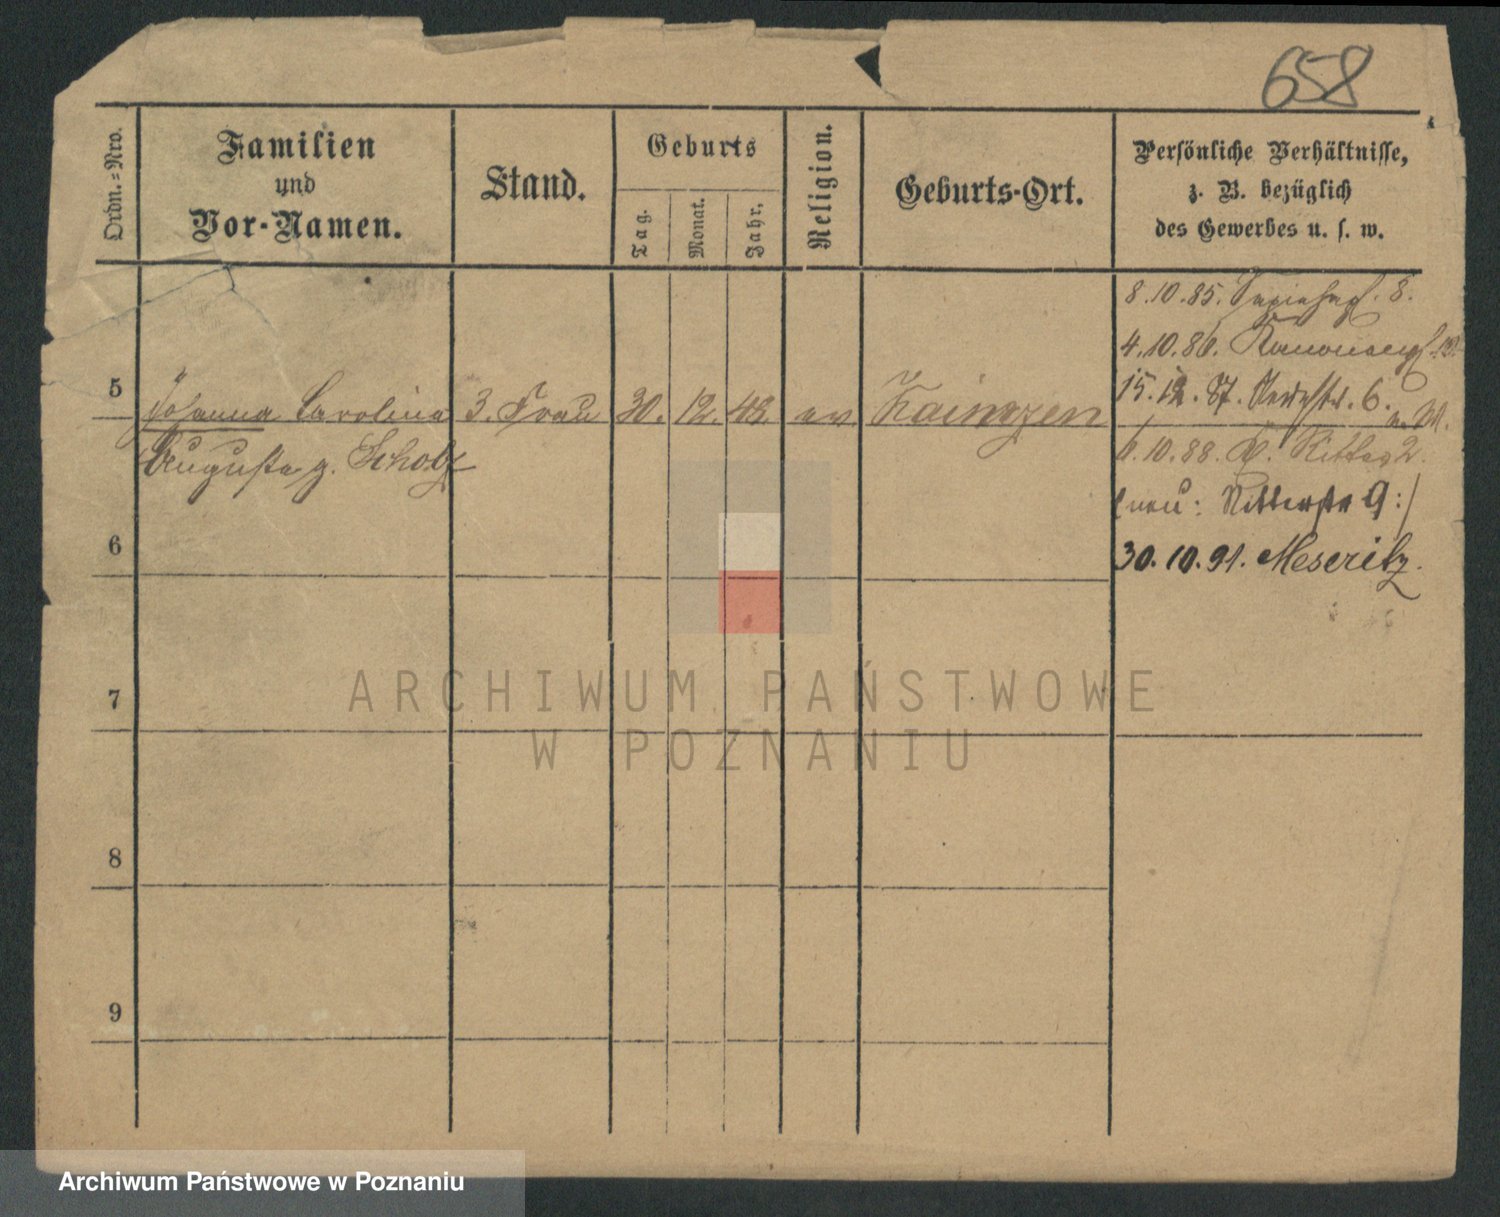 658
Ordn.=Nro.
Familien
und
Vor-Namen.
Stand.
Geburts
Tag.
Monat.
Jahr.
Religion.
Geburts-Ort.
Persönliche Verhältnisse,
z. B. bezüglich
des Gewerbes u. s. w.
8.10.85. 8.
4.10.86.
5 Johanna Carolina 3. Frau 30. 12. 48. ev. Kainzen
15.12. St. 6.
Auguste g. Scholz
6.10.88. Ritter 2.
neu: Ritterstr 9:/
6
30.10.91. Meseritz.
7
8
9
ARCHIWUM PAŃSTWOWE
W POZNANIU
Archiwum Państwowe w Poznaniu